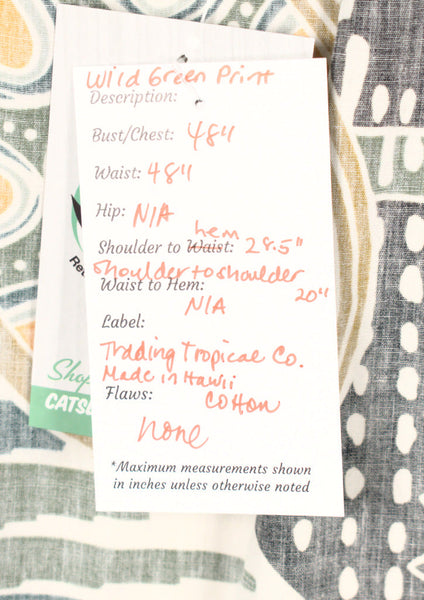 Wild Green Print
Description:
Bust/Chest: 48"
Waist: 48"
Hip: N/A
hem
Shoulder to Waist: 28.5"
Shoulder to shoulder
Waist to Hem: 20"
N/A
Label:
Trading Tropical Co.
Made in Hawii
Flaws: Cotton
none
*Maximum measurements shown
in inches unless otherwise noted
Ret
Shop
CATS